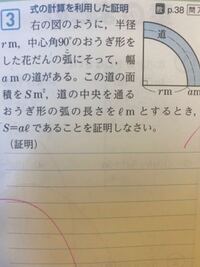 3 式の計算を利用した証明
教 p.38 問
右の図のように，半径
rm，中心角90°のおうぎ形を
した花だんの弧にそって，幅
amの道がある。この道の面
積をSm²，道の中央を通る
おうぎ形の弧の長さをℓmとするとき，
S=aℓであることを証明しなさい。
(証明)
道
rm
am